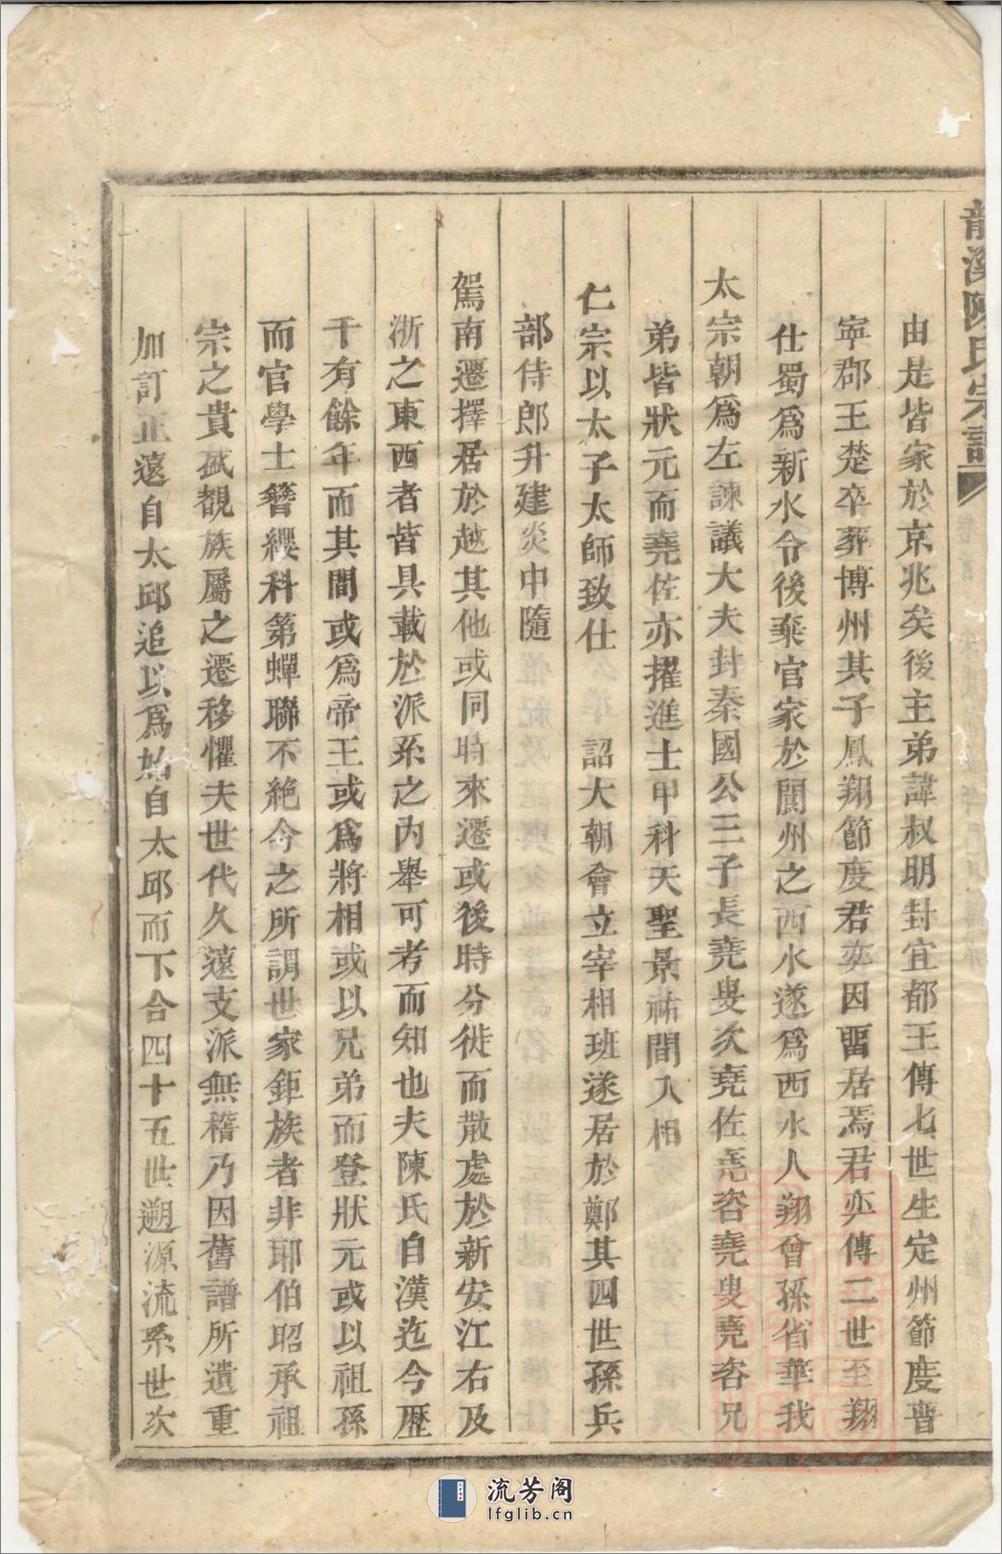 龍溪陳氏宗譜
由是皆家於京兆矣後主弟諱叔明封宜都王傳七世生定州節度書
寧郡王楚卒葬博州其子鳳翔節度君奕因畱居焉君奕傳二世至翔
仕蜀爲新水令後棄官家於閬州之西水遂爲西水人翔曾孫省華我
太宗朝爲左諫議大夫封秦國公三子長堯叟次堯佐堯咨堯叟堯咨兄
弟皆狀元而堯佐亦擢進士甲科天聖景祐間入相
仁宗以太子太師致仕 詔大朝會立宰相班遂居於鄭其四世孫兵
部侍郎升建炎中隨
駕南遷擇居於越其他或同時來遷或後時分徙而散處於新安江右及
浙之東西者皆具載於派系之內舉可考而知也夫陳氏自漢迄今歷
千有餘年而其間或爲帝王或爲將相或以兄弟而登狀元或以祖孫
而官學士簪纓科第蟬聯不絕今之所謂世家鉅族者非耶伯昭承祖
宗之貴冑覩族屬之遷移懼夫世代久遠支派無稽乃因舊譜所遺重
加訂正遠自太邱追以爲始自太邱而下合四十五世遡源流系世次
流芳阁
lfglib.cn